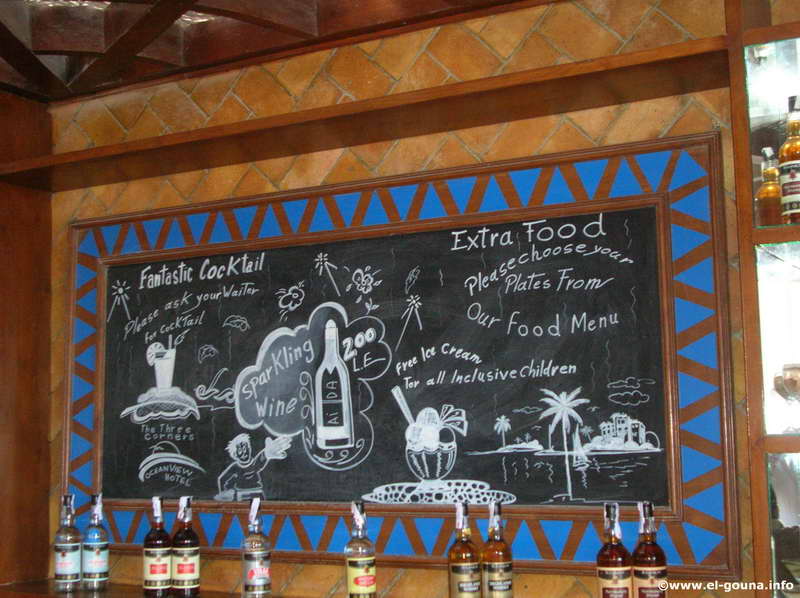 Fantastic Cocktail
Please ask your Waiter
For Cocktail
The Three
Corners
OCEAN VIEW
HOTEL
Sparkling
Wine
AiDA
200
L.E
Extra Food
Please choose your
Plates From
Our Food Menu
Free Ice Cream
For all Inclusive Children
©www.el-gouna.info